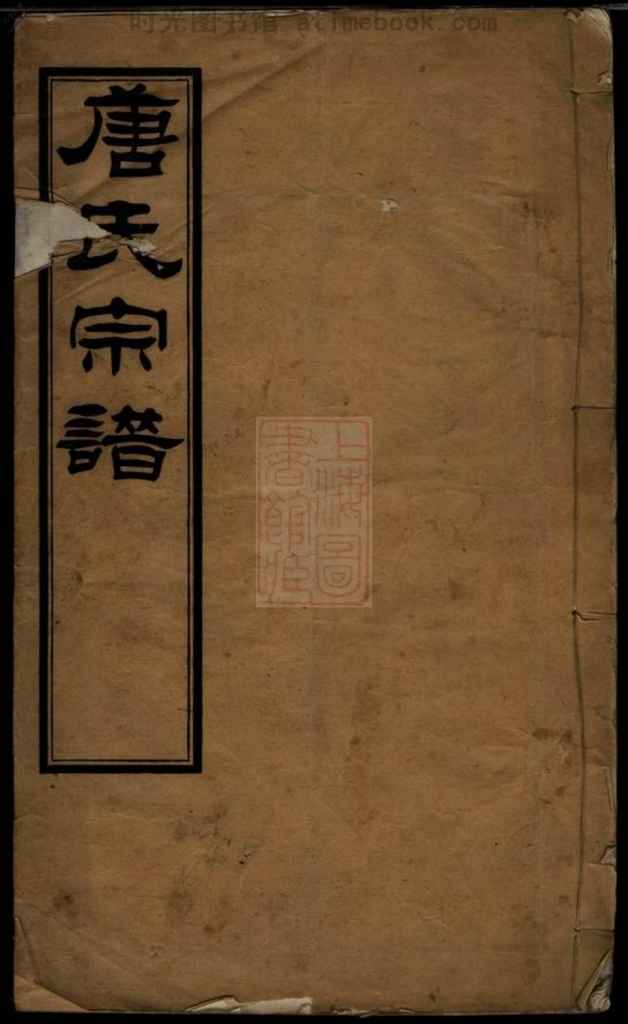 时光图书馆 atimebook.com
唐氏宗譜
上海圖
書館藏